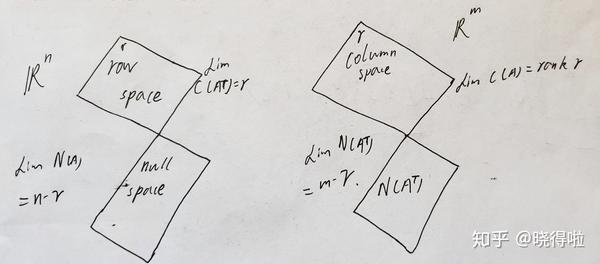 ℝⁿ
r
row
space
dim
C(Aᵀ)=r
dim N(A)
= n-r
null
space
ℝᵐ
r
column
space
dim C(A) = rank r
dim N(Aᵀ)
= m-r.
N(Aᵀ)
知乎 @晓得啦